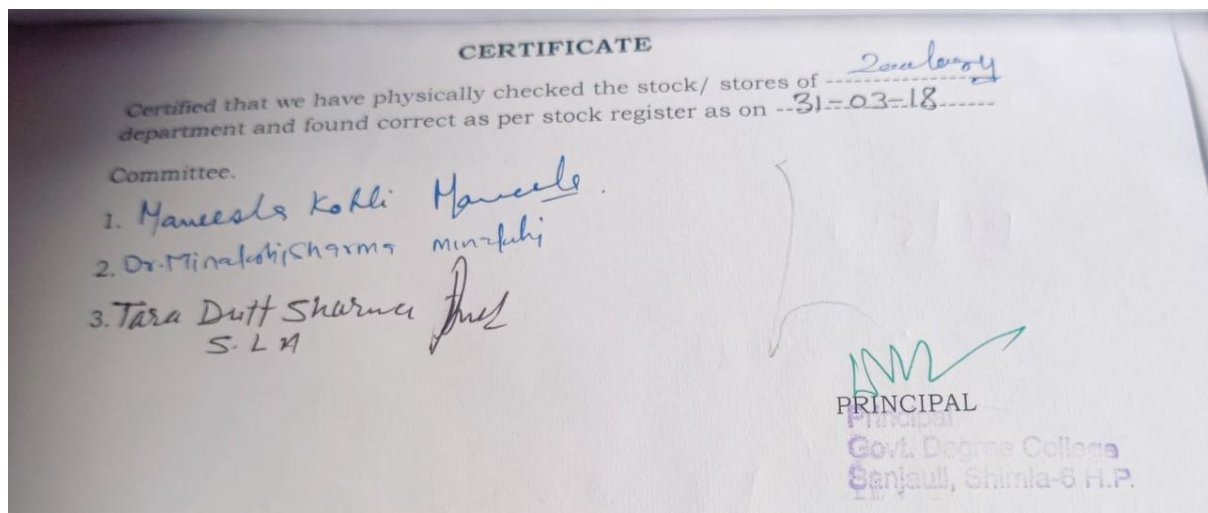 CERTIFICATE
Certified that we have physically checked the stock/ stores of Zoology
department and found correct as per stock register as on 31-03-18
Committee.
1. Maneesha Kohli
2. Dr. Minakshi Sharma Minakshi
3. Tara Dutt Sharma
S. L A
PRINCIPAL
Principal
Govt. Degree College
Sanjauli, Shimla-6 H.P.